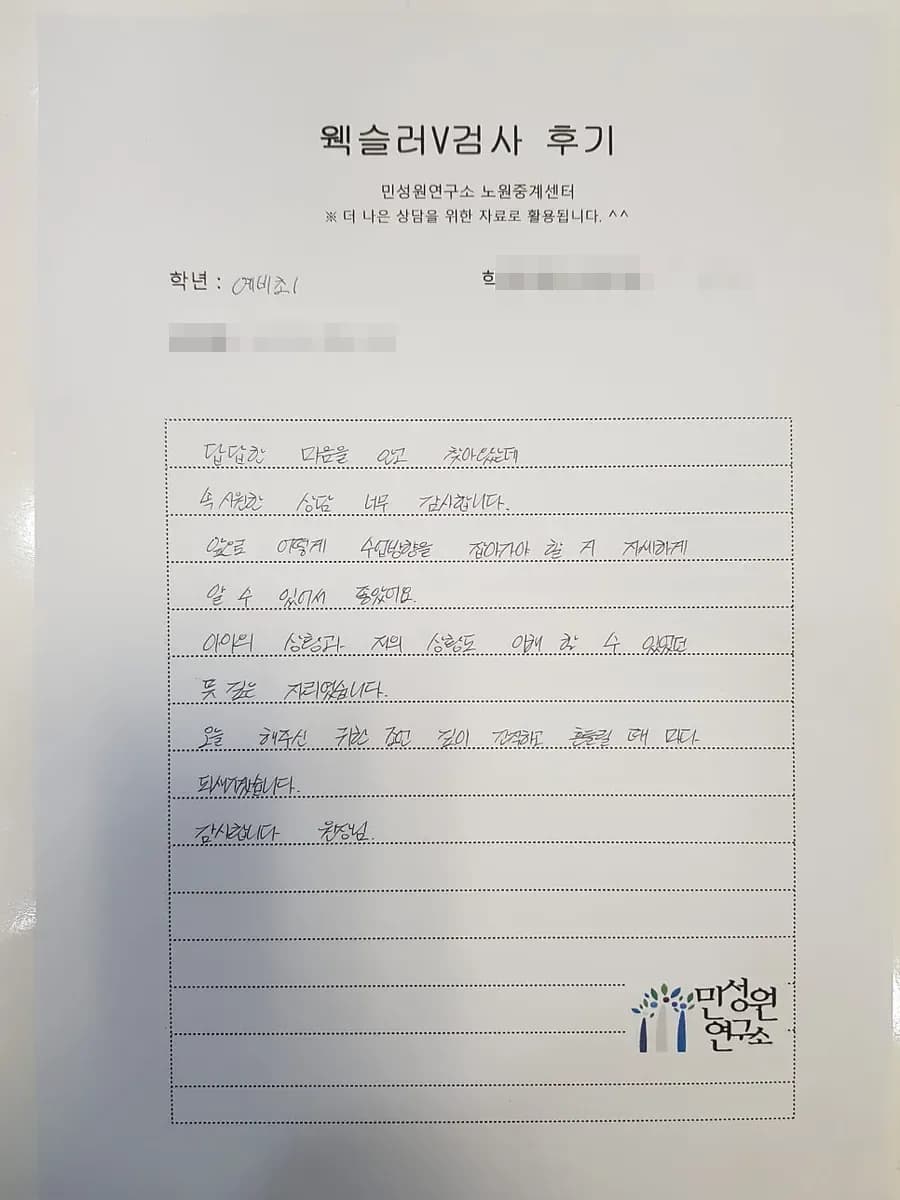 웩슬러V검사 후기
민성원연구소 노원중계센터
※ 더 나은 상담을 위한 자료로 활용됩니다. ^^
학년 : 예비초1
답답한 마음을 안고 찾아왔는데
속 시원한 상담 너무 감사합니다.
앞으로 어떻게 수업방향을 잡아가야 할 지 자세하게
알 수 있어서 좋았어요.
아이의 상황과 저의 상황도 이해 할 수 있었던
뜻 깊은 자리였습니다.
오늘 해주신 귀한 조언 깊이 간직하고 흔들릴 때 마다
되새기겠습니다.
감사합니다 원장님.
민성원
연구소